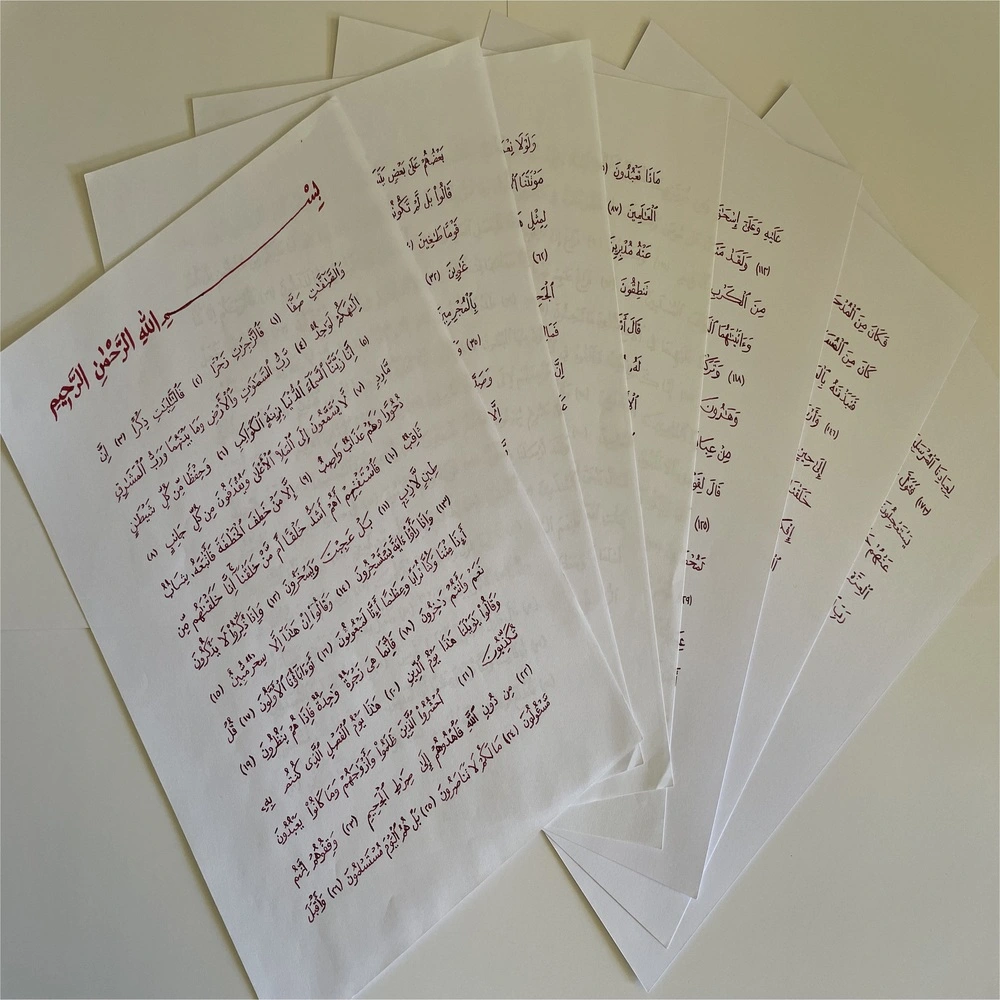 بِسْمِ اللَّهِ الرَّحْمَٰنِ الرَّحِيمِ
وَالصَّٰٓفَّٰتِ صَفًّا (١) فَالزَّٰجِرَٰتِ زَجْرًا (٢) فَالتَّٰلِيَٰتِ ذِكْرًا (٣) إِنَّ
إِلَٰهَكُمْ لَوَٰحِدٌ (٤) رَّبُّ السَّمَٰوَٰتِ وَالْأَرْضِ وَمَا بَيْنَهُمَا وَرَبُّ الْمَشَٰرِقِ
(٥) إِنَّا زَيَّنَّا السَّمَآءَ الدُّنْيَا بِزِينَةٍ الْكَوَاكِبِ (٦) وَحِفْظًا مِّن كُلِّ شَيْطَٰنٍ
مَّارِدٍ (٧) لَّا يَسَّمَّعُونَ إِلَى الْمَلَإِ الْأَعْلَىٰ وَيُقْذَفُونَ مِن كُلِّ جَانِبٍ (٨)
دُحُورًا وَلَهُمْ عَذَابٌ وَاصِبٌ (٩) إِلَّا مَنْ خَطِفَ الْخَطْفَةَ فَأَتْبَعَهُ شِهَابٌ
ثَاقِبٌ (١٠) فَاسْتَفْتِهِمْ أَهُمْ أَشَدُّ خَلْقًا أَم مَّنْ خَلَقْنَآ إِنَّا خَلَقْنَٰهُم مِّن
طِينٍ لَّازِبٍ (١١) بَلْ عَجِبْتَ وَيَسْخَرُونَ (١٢) وَإِذَا ذُكِّرُوا لَا يَذْكُرُونَ
(١٣) وَإِذَا رَأَوْا ءَايَةً يَسْتَسْخِرُونَ (١٤) وَقَالُوٓا إِنْ هَٰذَآ إِلَّا سِحْرٌ مُّبِينٌ (١٥)
أَءِذَا مِتْنَا وَكُنَّا تُرَابًا وَعِظَٰمًا أَءِنَّا لَمَبْعُوثُونَ (١٦) أَوَءَابَآؤُنَا الْأَوَّلُونَ (١٧) قُلْ
نَعَمْ وَأَنتُمْ دَٰخِرُونَ (١٨) فَإِنَّمَا هِيَ زَجْرَةٌ وَٰحِدَةٌ فَإِذَا هُمْ يَنظُرُونَ (١٩)
وَقَالُوا يَٰوَيْلَنَا هَٰذَا يَوْمُ الدِّينِ (٢٠) هَٰذَا يَوْمُ الْفَصْلِ الَّذِي كُنتُم بِهِ
تُكَذِّبُونَ (٢١) احْشُرُوا الَّذِينَ ظَلَمُوا وَأَزْوَٰجَهُمْ وَمَا كَانُوا يَعْبُدُونَ
(٢٢) مِن دُونِ اللَّهِ فَاهْدُوهُمْ إِلَىٰ صِرَٰطِ الْجَحِيمِ (٢٣) وَقِفُوهُمْ إِنَّهُم
مَّسْئُولُونَ (٢٤) مَا لَكُمْ لَا تَنَاصَرُونَ (٢٥) بَلْ هُمُ الْيَوْمَ مُسْتَسْلِمُونَ (٢٦) وَأَقْبَلَ
بَعْضُهُمْ عَلَىٰ بَعْضٍ
قَالُوا بَل لَّمْ
قَوْمًا طَٰغِينَ
غَٰوِينَ (٣٢)
بِالْمُجْرِمِينَ
(٣٥)
إِلَّا
وَلَوْلَا
مَوْتَتَنَا
لِمِثْلِ
(٦٢)
مَاذَا تَعْبُدُونَ
الْعَٰلَمِينَ (٨٧)
عَنْهُ مُدْبِرِينَ
تَنطِقُونَ
قَالَ
عَلَيْهِ وَعَلَىٰ
(١١٣) وَلَقَدْ
مِنَ
وَءَاتَيْنَٰهُمَا
(١١٨)
وَهَٰرُونَ
مِنْ
قَالَ
(١٢٥)
فَكَانَ مِنَ
كَانَ مِنَ
فَنَبَذْنَٰهُ
(١٤٦)
إِلَىٰ
لِعِبَادِنَا
(١٧٣) فَتَوَلَّ
يَسْتَعْجِلُونَ
عَنْهُمْ